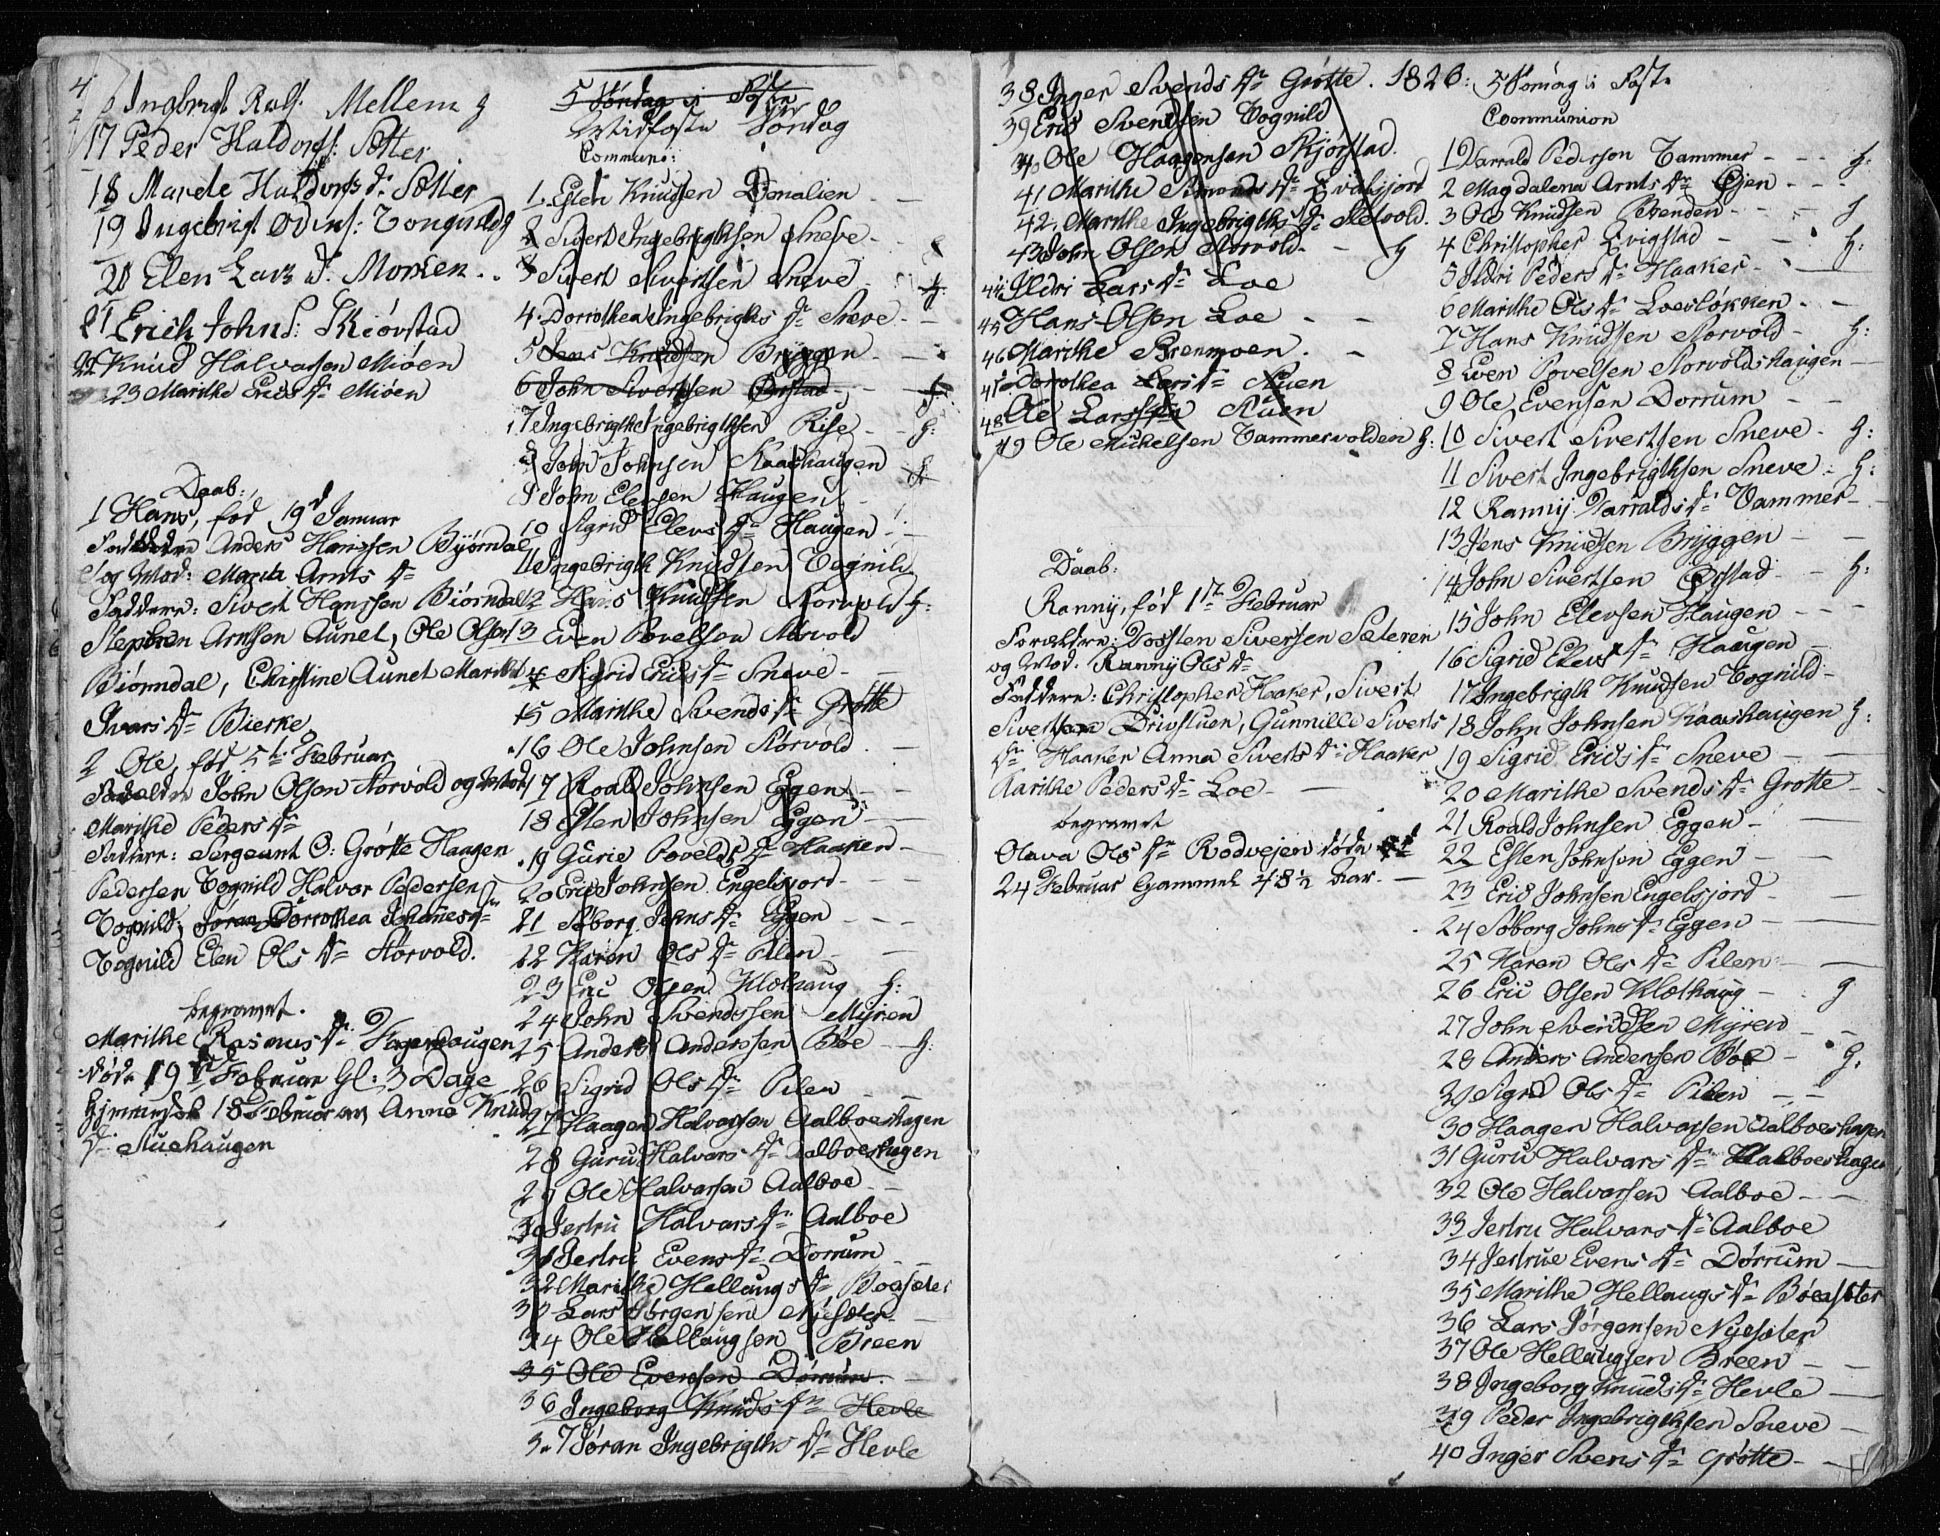 4
16 Ingbrigt Rolfs: Mellem g
17 Peder Haldorss: Sætter
18 Marete Haldorss dr Sætter
19 Ingebrigt Odins: Tongnild g
20 Elen Lars d. Moxien
21 Erich Johns: Skiørstad
22 Knud Halvorsen Miøen
23 Marithe Erics dr Miøen
Daab:
1 Hans, fød 19d Januar
Anders Hanssen Byørndal
og Mod: Marith Arnts dr
Faddere: Sivert Hanssen Biørndal
Stephen Arntsen Aunet, Ole Olsen
Biørndal, Christine Aunet Marith
Ivars dr Bierke
2 Ole, fød 5te Februar
John Olsen Storvold og Mod
Marithe Peders dr
Faddere: Sergeant O: Grøtte Haagen
Pedersen Tognild Halvor Pedersen
Tognild, Dorrothea Johannes dr
Tognild Elen Ols dr Storvold.
begravet.
Marithe Rasmus dr Fagerhaugen
døde 19d Februar Gl: 3 Dage
Hjemmedøbt 18 Februar av Anne Knuds
dr Stuehaugen
5 Søndag i Faste
Midfaste Søndag
Commune:
1. Esten Knudsen Donalien
2 Sivert Ingebrigthsen Sneve
3 Sivert Sivertsen Sneve
4. Dorrothea Ingebrigths dr Sneve
5 Jens Knudsen Bryggen
6 John Sivertsen Ørstad
7 Ingebrigth Ingebrigthsen Rise g:
8 John Johnsen Kaashaugen
9 John Elevsen Haugen
10 Sigrid Elevs dr Haugen
11 Ingebrigth Knudsen Tognild
12 Hans Knudsen Storvold g:
13 Even Povelsen Storvold
14 Sigrid Erics dr Sneve
15 Marithe Svends dr Grøtte
16 Ole Johnsen Storvold
17 Roald Johnsen Eggen
18 Esten Johnsen Eggen
19 Gurie Povels dr Haaker
20 Eric Johnsen Engelsjord
21 Søborg Johns dr Eggen
22 Karen Ols dr Pilen
23 Eric Olsen Klethaug g:
24 John Svendsen Myren
25 Anders Anderssen Bøe g:
26 Sigrid Ols dr Pilen
27 Haagen Halvorsen Aalboeshagen
28 Guru Halvors dr Aalboeshagen
29 Ole Halvorsen Aalboe
30 Jertru Halvars dr Aalboe
31 Jertru Evens dr Dorrum
32 Marithe Hellaugs dr Boesæter
33 Lars Jørgensen Nyesæter
34 Ole Hellaugsen Breen
35 Ole Evensen Dorrum
36 Ingeborg Knuds dr Hevle
37 Søran Ingebrigths dr Hevle
38 Inger Svends dr Grøtte. 1826:
39 Eric Svendsen Tognild
40 Ole Haagensen Skjørstad
41 Marithe Simonds dr Evigsjord
42. Marithe Ingebrigths dr Storvold.
43 John Olsen Storvold g
44 Ildri Lars dr Loe
45 Hans Olsen Loe
46 Marithe Grenmoen
47 Dorothea Lars dr Stuen
48 Ole Larssen Stuen
49 Ole Mikkelsen Tammervolden g:
Daab:
Ranny, fød 1ste Februar
Forældre: Dossten Siversen Sæteren
og Mod: Ranny Ols dr
Faddere: Christopher Haaker, Sivert
Sivertsen Drivstuen, Gunnille Siverts
dr Haaker Anna Siverts dr Haaker
Karithe Peders dr Loe
begravet
Olava Ols dr Rodvejen døde
24 Februar Gammel 48 1/2 Aar.
5 Sønnag i Faste
Communion
1 Darrald Pederson Tammer g:
2 Magdalena Arnts dr Øjen
3 Ole Knudsen Brenden g
4 Christopher Evigstad g:
5 Ildri Peders dr Haaker
6 Marithe Ols dr Loesløkken
7 Hans Knudsen Storvold g:
8 Even Povelsen Storvoldshaugen
9 Ole Evensen Dorrum
10 Sivert Sivertsen Sneve g:
11 Sivert Ingebrigthsen Sneve g:
12 Ranny Darralds dr Tammer
13 Jens Knudsen Bryggen
14 John Sivertsen Ørstad g:
15 John Elevsen Haugen
16 Sigrid Elevs dr Haugen
17 Ingebrigth Knudsen Tognild
18 John Johnsen Kaashaugen g:
19 Sigrid Erics dr Sneve
20 Marithe Svends dr Grøtte
21 Roald Johnsen Eggen
22 Esten Johnsen Eggen
23 Eric Johnsen Engelsjord
24 Søborg Johns dr Eggen
25 Karen Ols dr Pilen
26 Eric Olsen Klethaug g
27 John Svendsen Myren
28 Anders Andersen Bøe g:
29 Sigrid Ols dr Pilen
30 Haagen Halvorsen Aalboeshagen
31 Guru Halvars dr Aalboeshagen
32 Ole Halvorsen Aalboe
33 Jertru Halvars dr Aalboe
34 Jertrue Evens dr Dorrum
35 Marithe Hellaugs dr Bøesæter
36 Lars Jørgensen Nyesæter
37 Ole Hellaugsen Breen
38 Ingeborg Knuds dr Hevle
39 Peder Ingebrigthsen Sneve
40 Inger Svens dr Grøtte